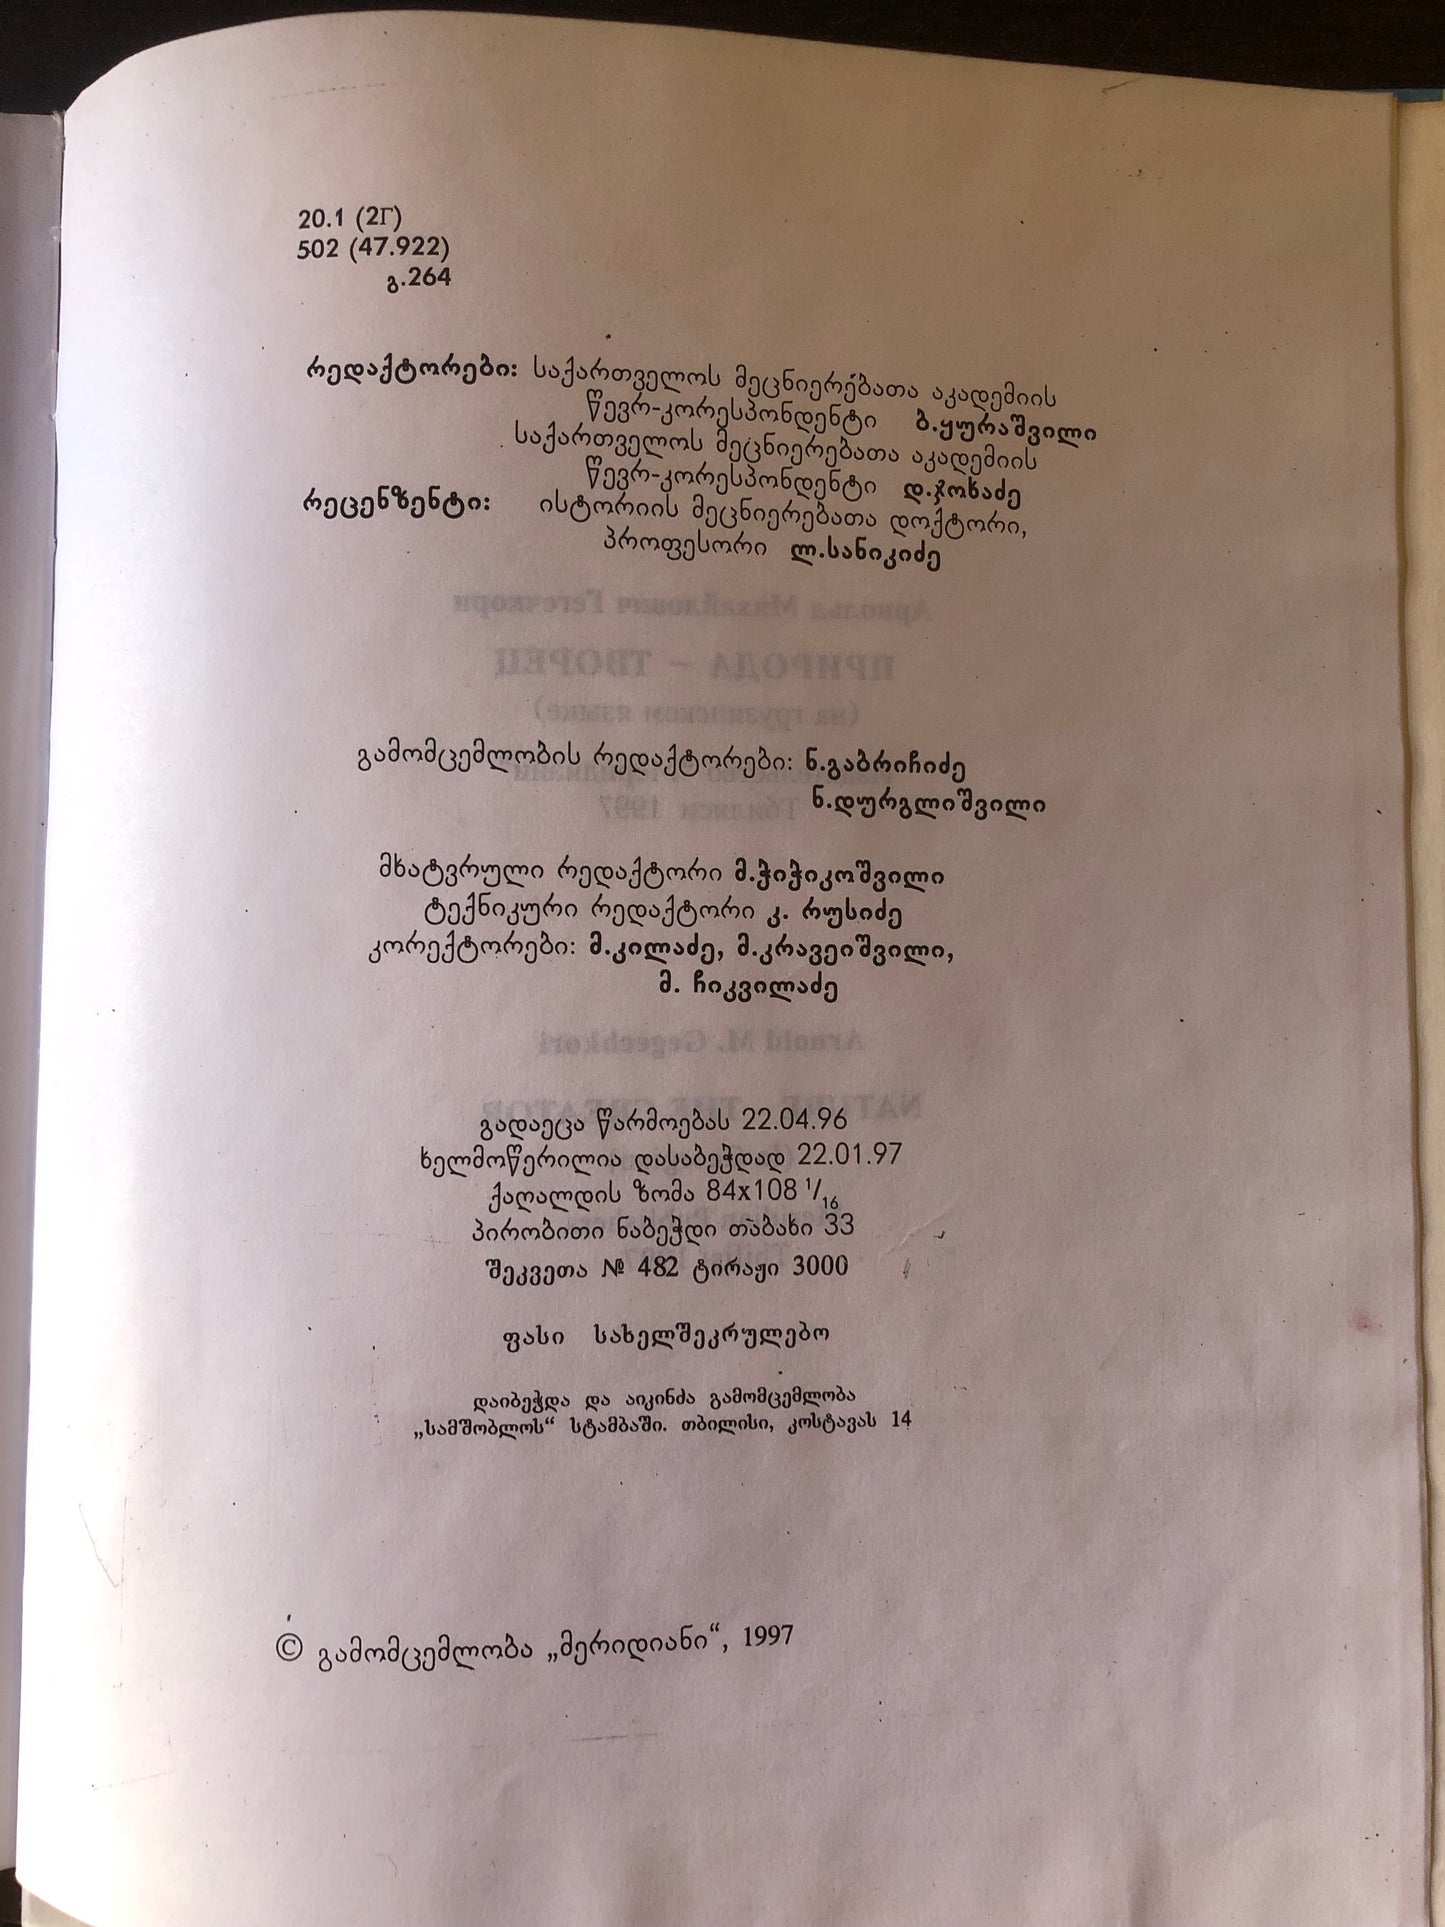 20.1 (2Г)
502 (47.922)
გ.264
რედაქტორები: საქართველოს მეცნიერებათა აკადემიის
წევრ-კორესპონდენტი ბ.ყურაშვილი
საქართველოს მეცნიერებათა აკადემიის
წევრ-კორესპონდენტი დ.ჯოხაძე
რეცენზენტი: ისტორიის მეცნიერებათა დოქტორი,
პროფესორი ლ.სანიკიძე
Арнольд Михайлович Гегечкори
ПРИРОДА – ТВОРЕЦ
(на грузинском языке)
გამომცემლობის რედაქტორები: ნ.გაბრიჩიძე
ნ.დურგლიშვილი
Тбилиси 1997
მხატვრული რედაქტორი მ.ჭიჭიკოშვილი
ტექნიკური რედაქტორი კ. რუსიძე
კორექტორები: მ.კილაძე, მ.კრავეიშვილი,
მ. ჩიკვილაძე
Arnold M. Gegechkori
NATURE THE CREATOR
გადაეცა წარმოებას 22.04.96
ხელმოწერილია დასაბეჭდად 22.01.97
ქაღალდის ზომა 84x108 1/16
პირობითი ნაბეჭდი თაბახი 33
შეკვეთა № 482 ტირაჟი 3000
ფასი სახელშეკრულებო
დაიბეჭდა და აიკინძა გამომცემლობა
„სამშობლოს“ სტამბაში. თბილისი, კოსტავას 14
© გამომცემლობა „მერიდიანი“, 1997